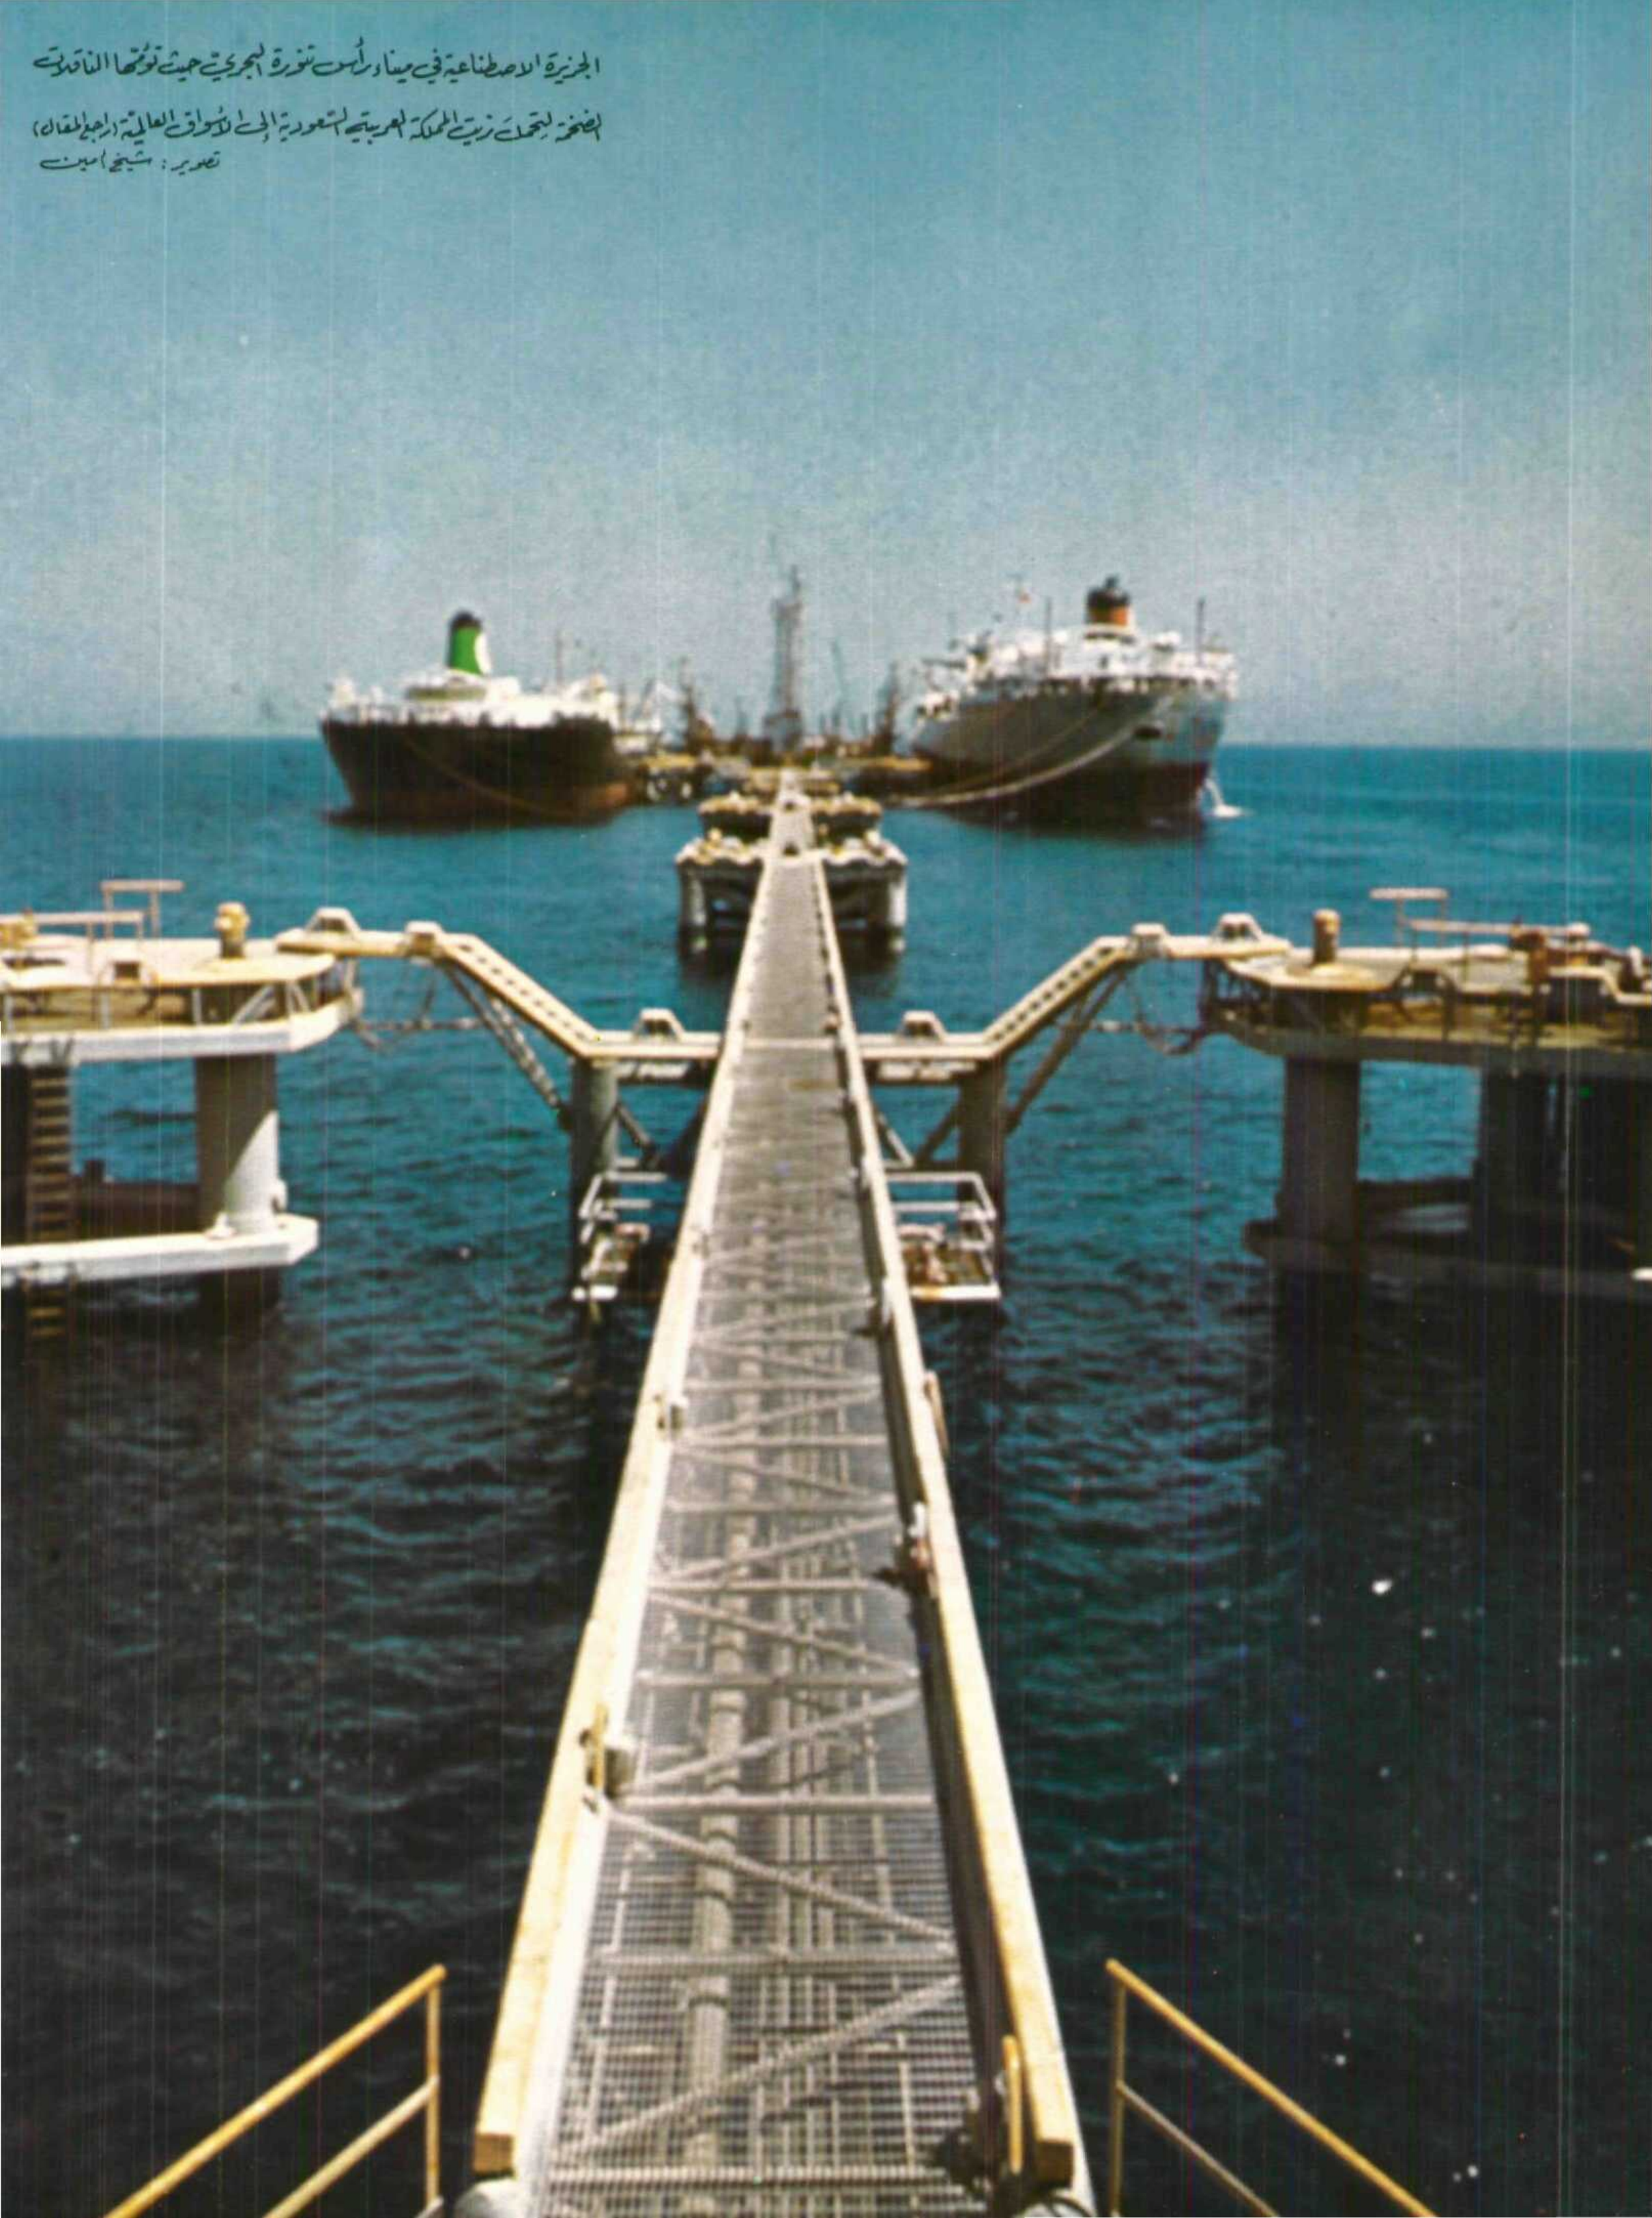 الجزيرة الاصطناعية في ميناء رأس تنورة البحري حيث تؤمّها الناقلات
الضخمة لتحمل زيت المملكة العربية السعودية إلى الأسواق العالمية (راجع المقال)
تصوير : شيخ أمين